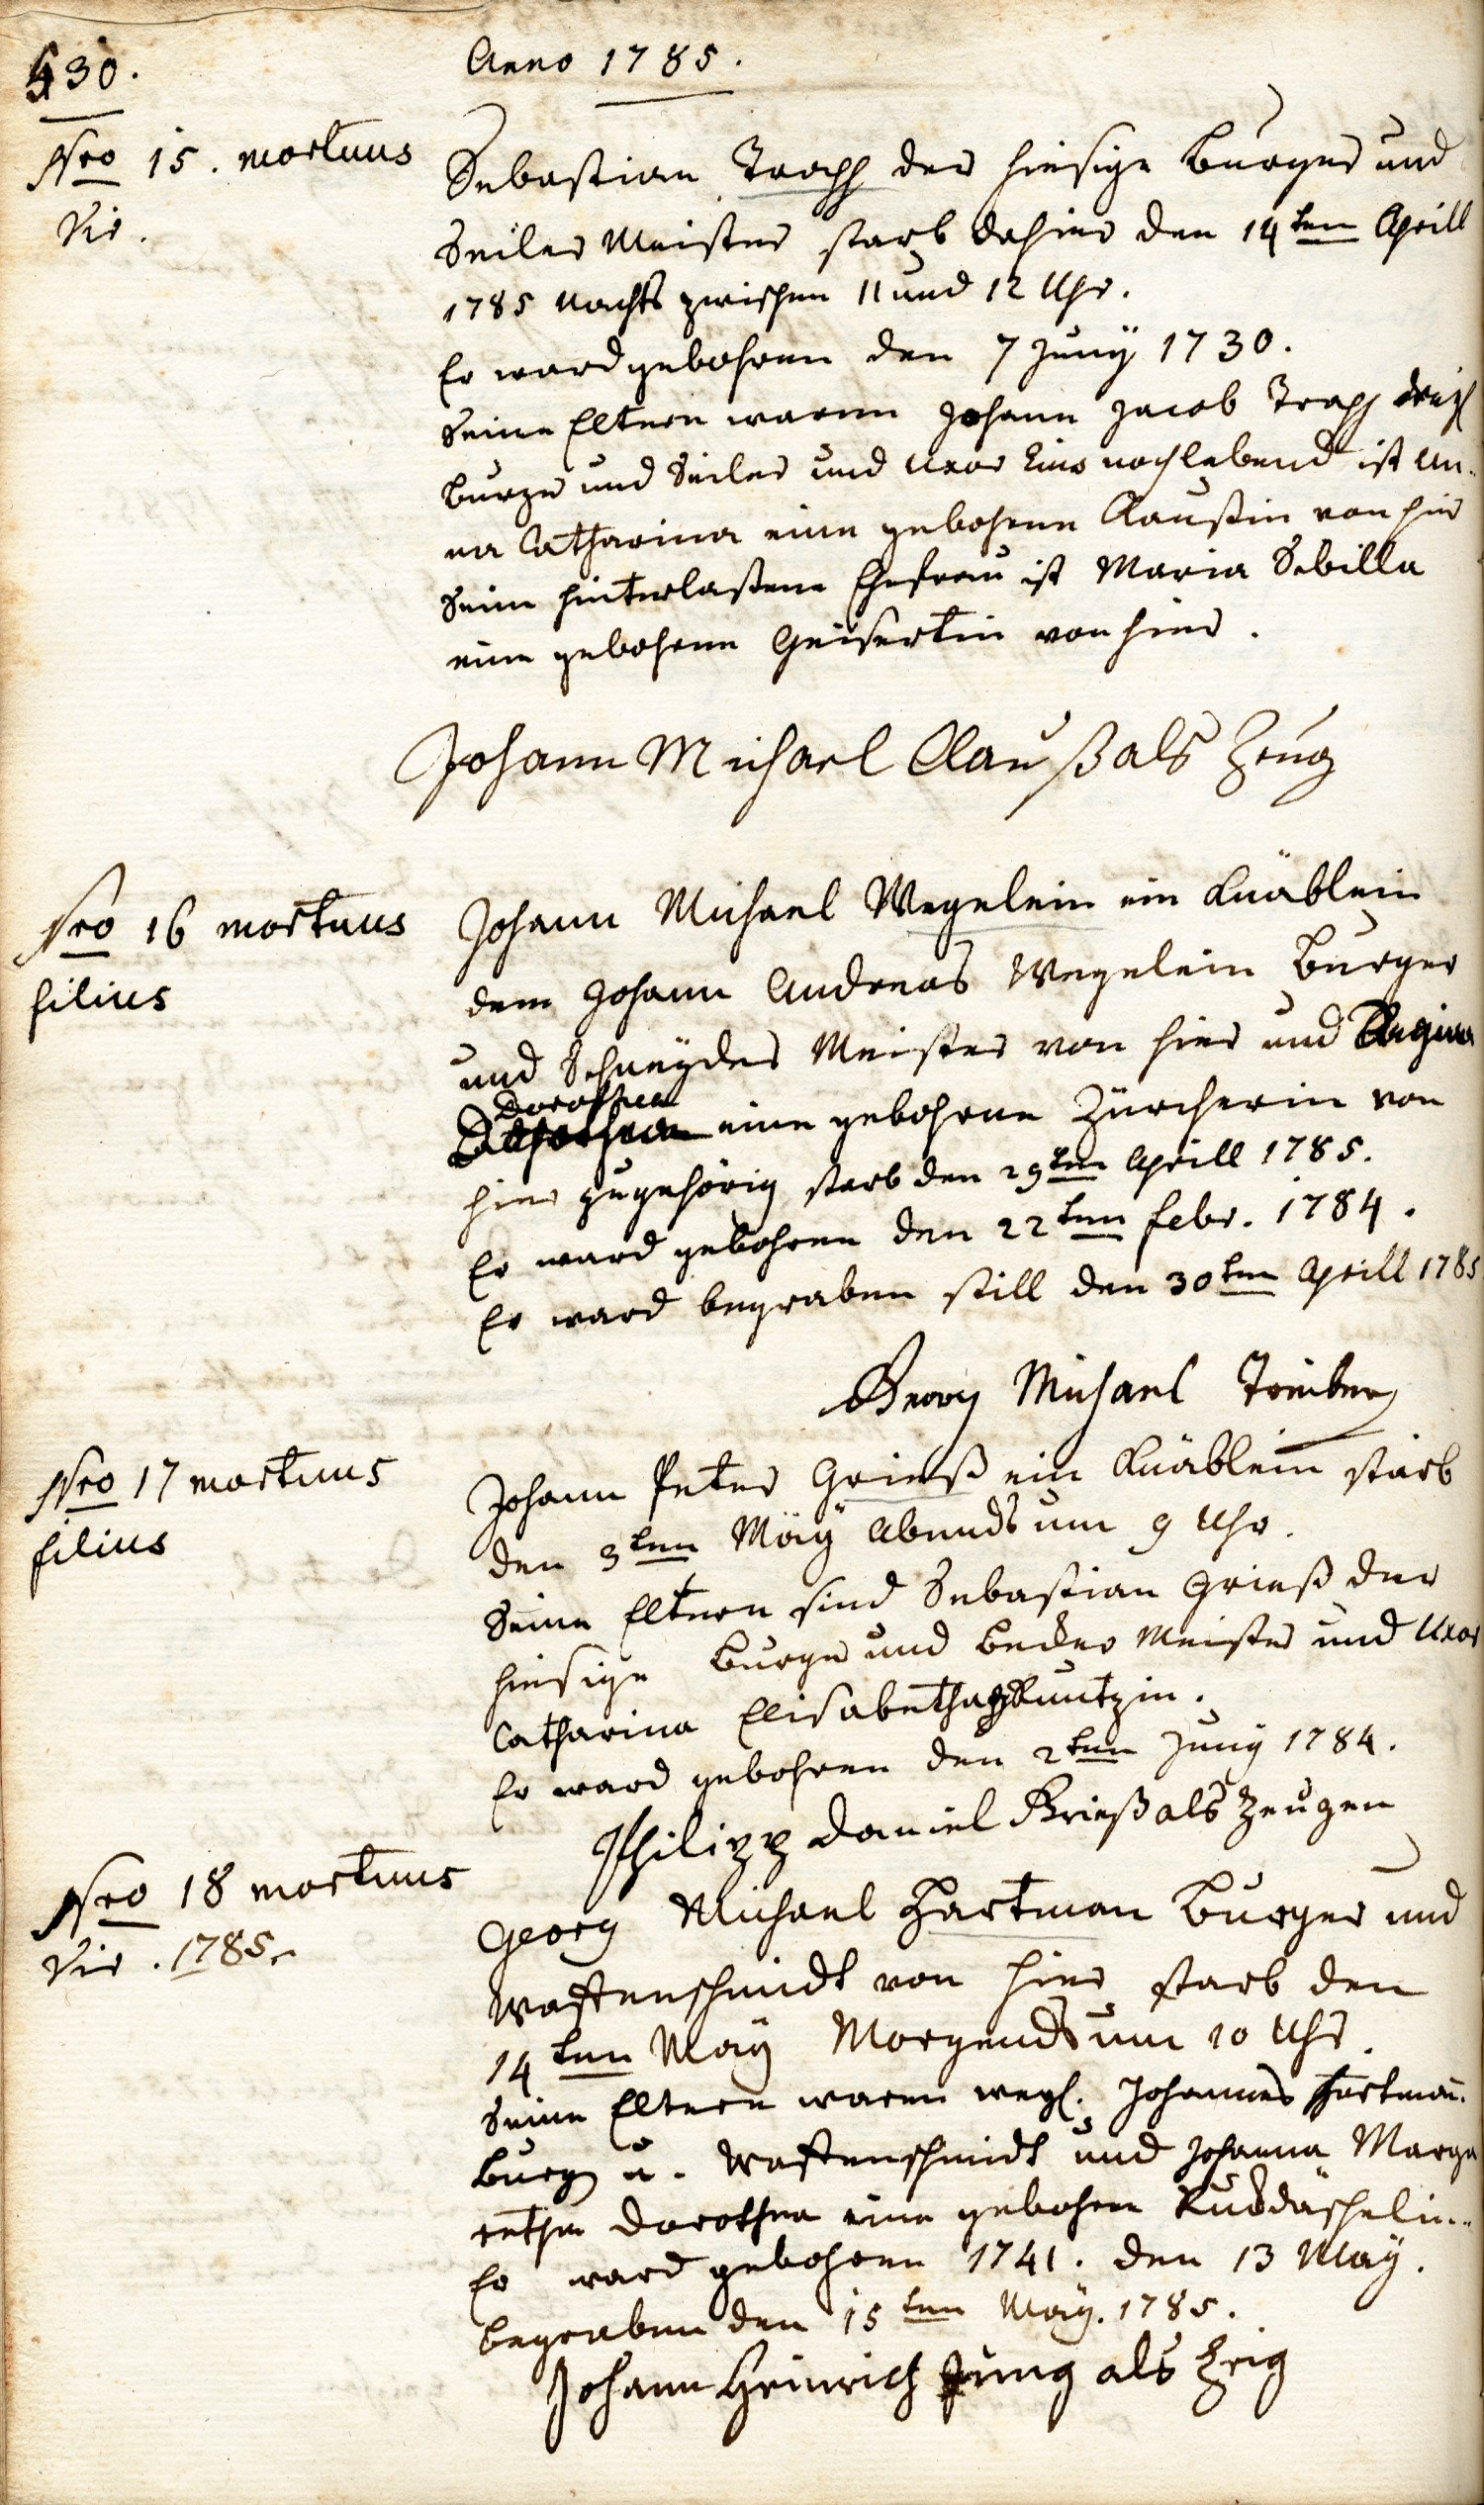 430.
Anno 1785.
Nro 15. mortuus
Vir.
Sebastian Trapp der hiesige Burger und
Seiler Meister starb dahier den 14ten Aprill
1785 Nachts zwischen 11 und 12 Uhr.
Er ward gebohren den 7 Junÿ 1730.
Seine Eltern waren Johann Jacob Trapp
Burger und Seiler und Uxor Eius noch lebend ist An-
na Catharina eine gebohrne Claußin von hier
Seine hinterlaßene Ehefrau ist Maria Sibilla
eine gebohrne Geisertin von hier.
Johann Michael Clauß als Zeug
Nro 16 mortuus
filius
Johann Michael Wegelein ein Knäblein
dem Johann Andreas Wegelein Burger
und Schneÿder Meister von hier und Regina
Dorothea
eine gebohrne Zürcherin von
hier zugehörig starb den 29ten Aprill 1785.
Er ward gebohren den 22ten Febr. 1784.
Er ward begraben still den 30ten Aprill 1785
Georg Michael Treiber
Nro 17 mortuus
filius
Johann Peter Grieß ein Knäblein starb
den 3ten Maÿ Abends um 9 Uhr.
Seine Eltern sind Sebastian Grieß der
hiesige Burger und Becker Meister und Uxor
Catharina Elisabetha Kuntzin.
Er ward gebohren den 2ten Junÿ 1784.
Philipp Daniel Grieß als Zeugen
Nro 18 mortuus
Vir. 1785.
Georg Michael Hartman Burger und
Waffenschmidt von hier starb den
14ten Maÿ Morgends um 10 Uhr.
Seine Eltern waren weyl. Johannes Hartman̄.
Burger u. Waffenschmidt und Johanna Marga
retha Dorothea eine gebohrne
Er ward gebohren 1741. den 13 Maÿ.
begraben den 15ten Maÿ. 1785.
Johann Heinrich Jung als Zeig